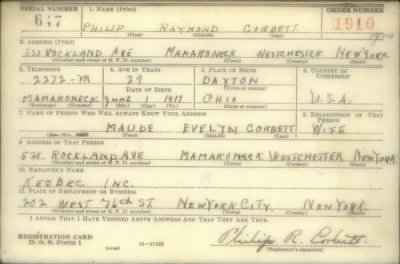 SERIAL NUMBER 1. NAME (Print) ORDER NUMBER
PHILIP RAYMOND CORBETT 1910
(First) (Middle) (Last)
2. ADDRESS (Print)
528 ROCKLAND AVE MAMARONECK WESTCHESTER NEW YORK
(Number and street or R. F. D. number) (Town) (County) (State)
3. TELEPHONE 4. AGE IN YEARS 5. PLACE OF BIRTH 6. COUNTRY OF CITIZENSHIP
2272-M 29 DAYTON
DATE OF BIRTH (Town or county)
MAMARONECK June 1911 OHIO U.S.A.
(Exchange) (Number) (Mo.) (Day) (Yr.) (State or country)
7. NAME OF PERSON WHO WILL ALWAYS KNOW YOUR ADDRESS 8. RELATIONSHIP OF THAT PERSON
MAUDE EVELYN CORBETT WIFE
(First) (Middle) (Last)
9. ADDRESS OF THAT PERSON
528 ROCKLAND AVE MAMARONECK WESTCHESTER NEW YORK
(Number and street or R. F. D. number) (Town) (County) (State)
10. EMPLOYER'S NAME
INC.
11. PLACE OF EMPLOYMENT OR BUSINESS
202 WEST 76th ST. NEW YORK CITY. NEW YORK.
(Number and street or R. F. D. number) (Town) (County) (State)
I AFFIRM THAT I HAVE VERIFIED ABOVE ANSWERS AND THAT THEY ARE TRUE.
REGISTRATION CARD
D. S. S. FORM 1 Philip R. Corbett